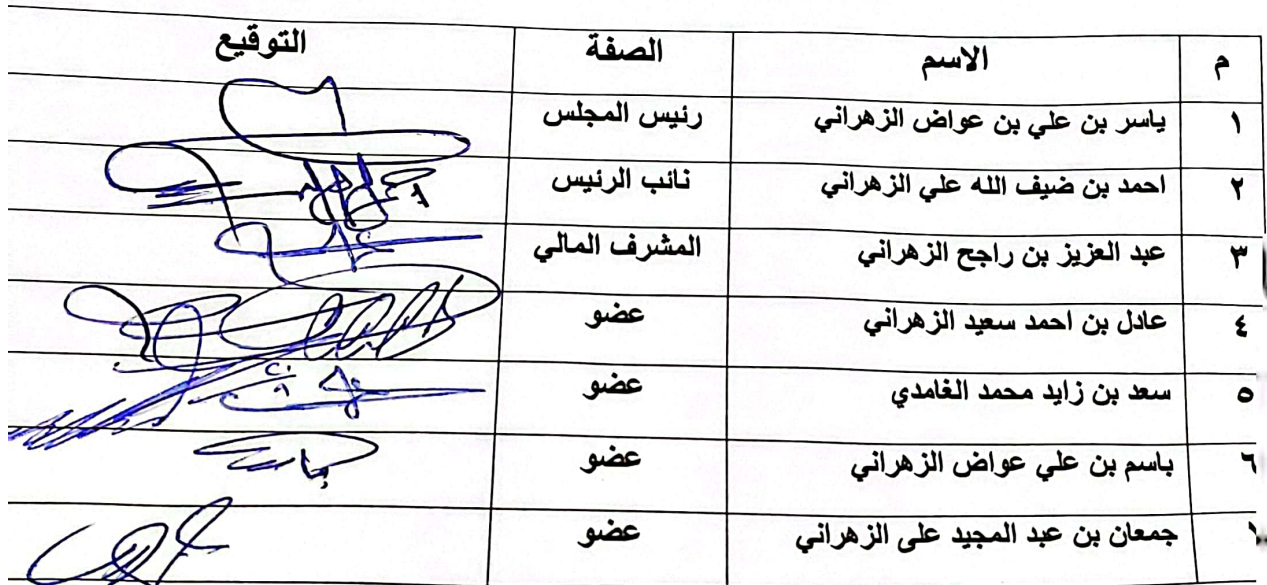 م الاسم الصفة التوقيع
١ ياسر بن علي بن عواض الزهراني رئيس المجلس
٢ احمد بن ضيف الله علي الزهراني نائب الرئيس
٣ عبد العزيز بن راجح الزهراني المشرف المالي
٤ عادل بن احمد سعيد الزهراني عضو
٥ سعد بن زايد محمد الغامدي عضو
٦ باسم بن علي عواض الزهراني عضو
جمعان بن عبد المجيد على الزهراني عضو